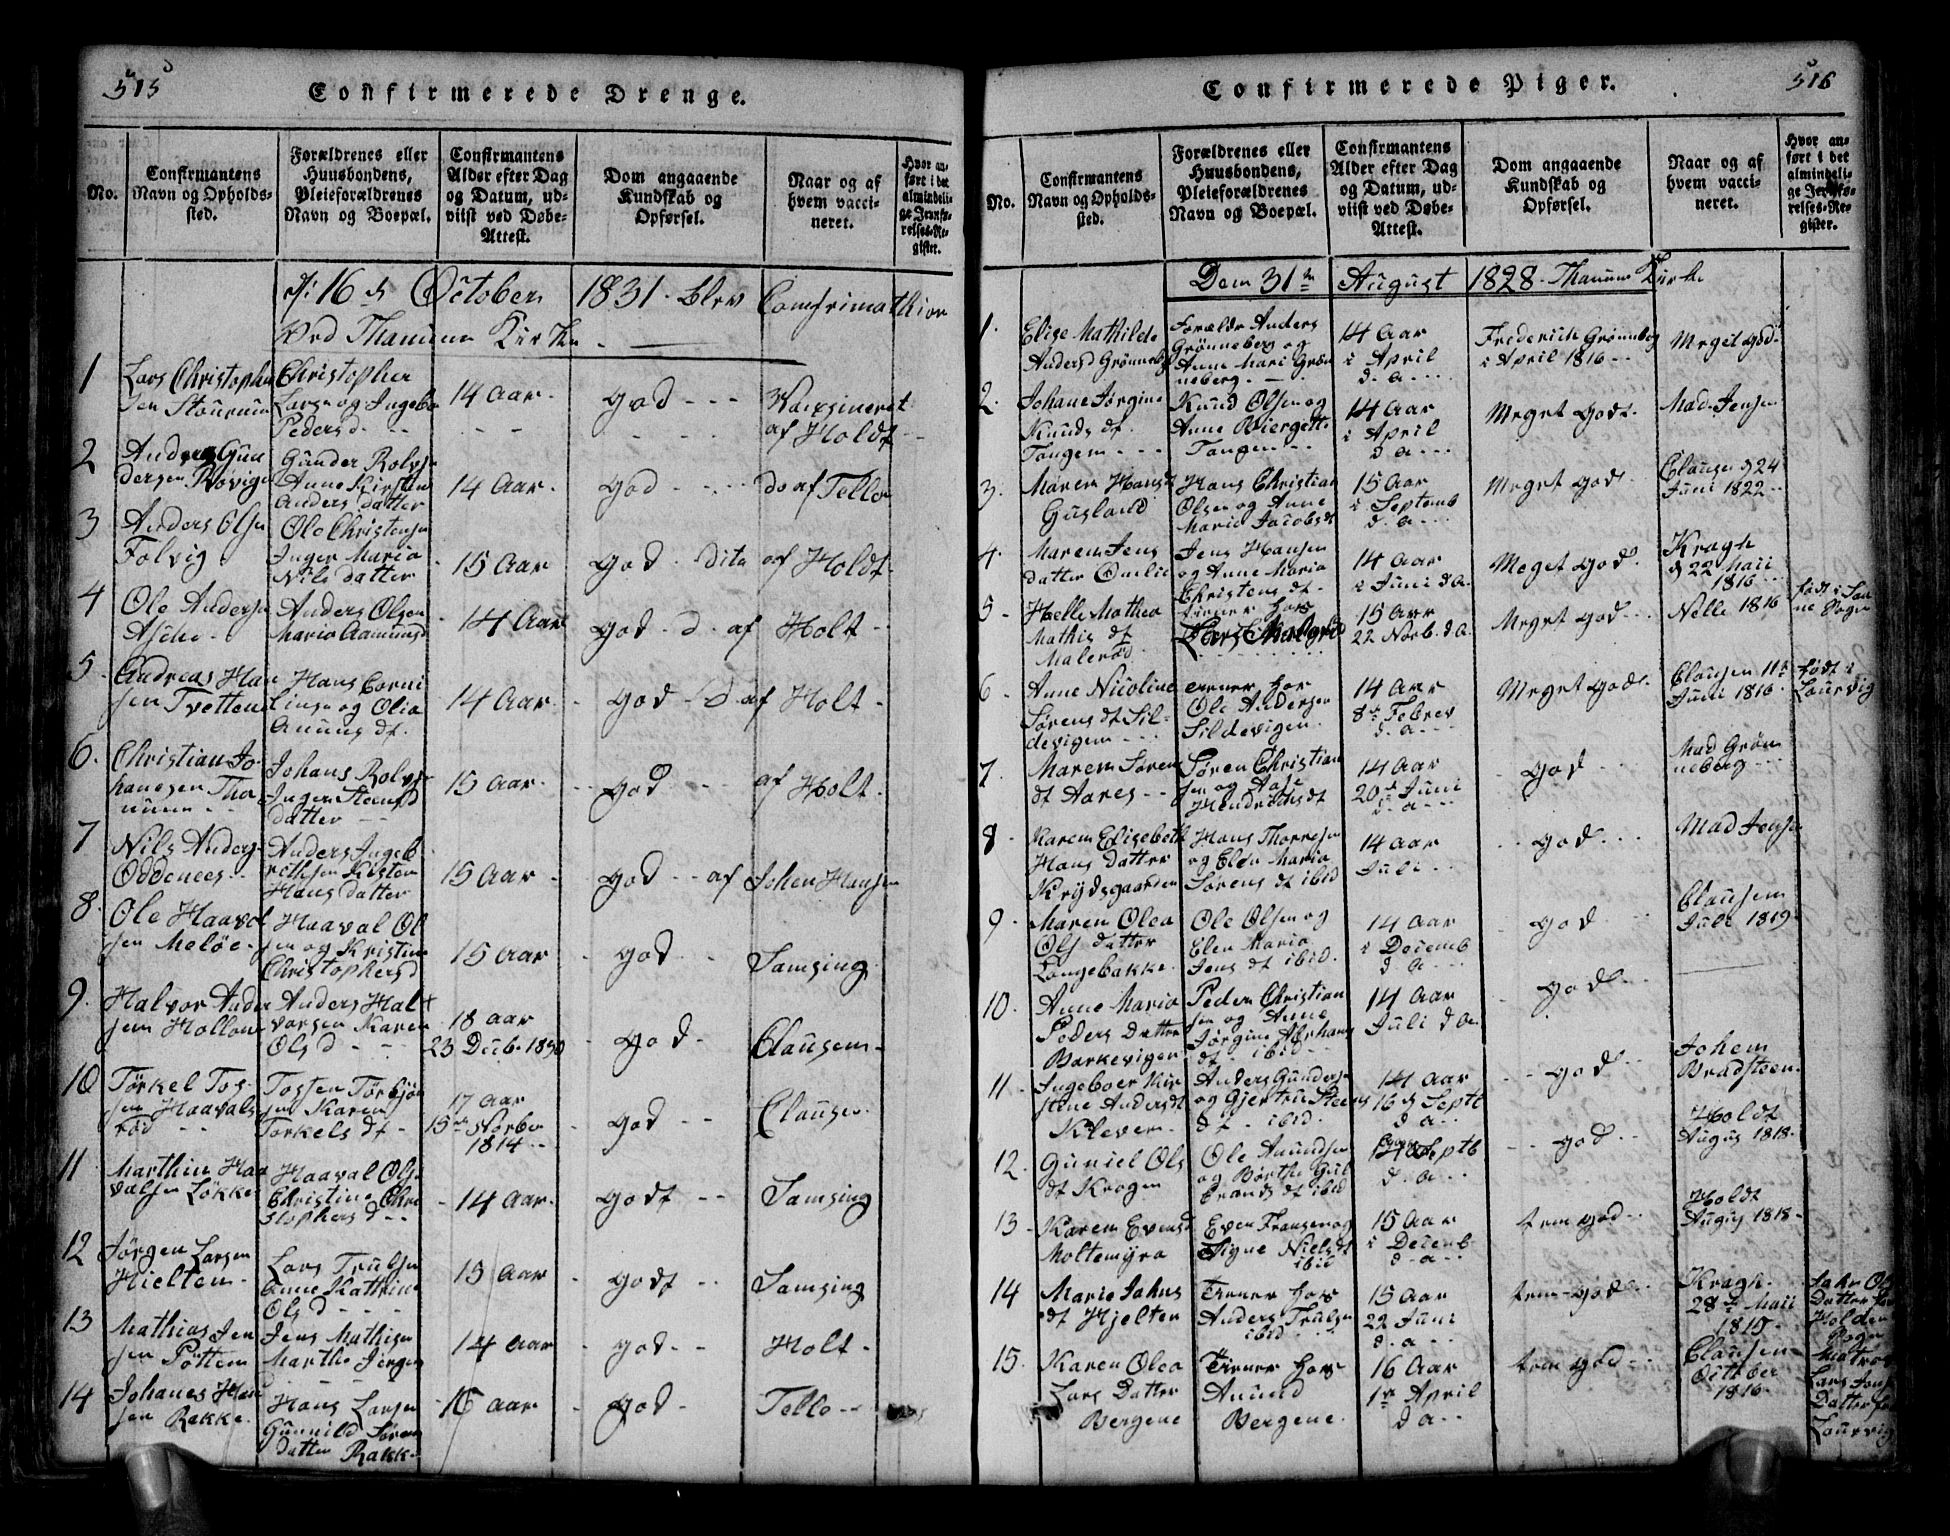 515
Confirmerede Drenge.
No.
Confirmantens
Navn og Opholds-
sted.
Forældrenes eller
Huusbondens,
Pleieforældrenes
Navn og Boepæl.
Confirmantens
Alder efter Dag
og Datum, ud-
viist ved Døbe-
Attest.
Dom angaaende
Kundskab og
Opførsel.
Naar og af
hvem vacci-
neret.
Hvor an-
ført i det
almindeli-
ge Jevnfø-
relses-Re-
gister.
16 October 1831. blev
Ved Thanum Kirke.
1
Lars Christopher
sen
Christopher
Larsen og Ingebo
Pedersd.
14 Aar.
god
af Holdt
2
Anders Gun
dersen Rovigen
Gunder Rolvs
Anne Kirsten
Anders datter
14 Aar.
god
do af Tello
3
Anders Olsen
Folvig
Ole Christensen
Inger Maria
Nils datter
15 Aar
god dito af Holdt.
4
Ole Andersen
Anders Olsen
Maria
14 Aar
god. d. af Holt
5.
Andreas Han
sen Tvetten
Hans Corni
liusen og Olia
14 Aar
god D af Holt
6.
Christian Jo
hansen Tha
num
Johans Rolvs
Inger Steens
datter
15 Aar.
god af Holt.
7
Nils Anders
Oddenees
Anders Ingeb
Kirsten
Hans datter
15 Aar
god af Johen Hansen
8.
Ole Haavol
sen Meløe
Haaval Ol
sen og Kristin
Christophersd
15 Aar
god
Samsing
9.
Halvor Ander
sen
Anders Hal
vorsen Karen
Ols d
18 aar
god
Clausen
10
Tørkel Tos
sen Haavals
rød
Tosten Torbjø
sen Karen
Torkels dt
17 Aar
15 Norbr
1814
god
Clausen
11
Marthin Haa
valsen Løkke
Haaval Ols
Christine Chri
stophers d
14 Aar
godt
Samsing
12
Jørgen Larsen
Hielten
Lars Trulsen
Anne Kathrine
Ols d
15 Aar
godt
Samsing
13
Mathias Jen
sen Pøtten
Jens Mathisen
Marthe
14 Aar
god
Holt.
14
Johanes Han
sen Rakke.
Hans Larsen
Gunnild Soren
datter Rakke
16 aar
god
Tello
516
Confirmerede Piger.
No.
Confirmantens
Navn og Opholds-
sted.
Forældrenes eller
Huusbondens,
Pleieforældrenes
Navn og Boepæl.
Confirmantens
Alder efter Dag
og Datum, ud-
viist ved Døbe-
Attest.
Dom angaaende
Kundskab og
Opførsel.
Naar og af
hvem vacci-
neret.
Hvor an-
ført i det
almindeli-
ge Jevnfø-
relses-Re-
gister.
Dem 31te August 1828. Thanum Kirke
1.
Elise Mathilde
Andersd Grønneberg
Forældr Anders
Grønneberg og
Anne Mari Grøn
neberg.
14 Aar
i April
d. a.
Frederich Grønneberg
i April 1816
Meget god
2.
Johane Jørgine
Knuds dt.
Tangen
Knud Olsen og
Anne Biergette
Tangen
14 Aar
i April
d a
Meget godt.
Mad. Jensen
3.
Maren Hansd
Gusland
Hans Christian
Olsen og Anne
Maria Jacobsdt
15 Aar
i Septemb
d. a
Meget godt
Clausen d 24
Juni 1822
4.
Maren Jens
datter Omlie
Jens Hansen
og Anne Maria
Christens dt.
14 Aar
i Juni d a.
Meget god
Kragh
d 22 Maii
1816
5
Helle Mathea
Mathis dt
Malerød
tiener hos
15 Aar
22 Novb. d a.
Meget god
Nelle 1816
født i San
ne Sogn
6
Anne Nicoline
Sørens dt Sil-
devigen
tiener hos
Ole Andersen
Sildevigen
14 Aar
8de Febrev
d. a.
Meget god.
Clausen 11te
Juni 1816.
født i
Laurvig
7.
Maren Søren
dt Aares
Søren Christian
sen og Aase
Hendrichsdt
14 Aar
20de Juni
d. a
god
Mad Grøn
neberg
8
Karen Elisebeth
Hans datter
Krydsgaarden
Hans Thorresen
og Elen Maria
Sørens dt ibid
14 Aar
Juli
god
Mad Jensen
9
Maren Olea
Ols datter
Langebakke
Ole Olsen og
Elen Maria
Jens dt ibid.
14 Aar
i Decemb
d a
god
Clausen
Juli 1819
10.
Anne Maria
Peders datter
Barkevigen
Peder Christian
sen og Anne
Jørgine Abrhams
dt. ibid
14 Aar
Juli d a
god
11
Ingeboer Kir
stine Andersdt
Kleven
Anders Gunders
og Gjertru Steens
dt. ibid.
14 Aar
16 d Septb
d a
god
Johem
Bradsteen
12
Guniel Ols
dt Krogen
Ole Amundsen
og Birthe Gul
brands dt ibid
Septb
d. a
god
Holdt
Augus 1818.
13
Karen Evensd
Moltemyra
Even Fransen og
Signe Nielsdt
ibid
15 Aar
i Decemb
d. a
tem god
Holdt
Augus 1818
14
Marie Jahns
dt Hjelten
tiener hos
Anders Trulsen
ibid
15 Aar
22 Juni
d. a
tem god
Kragh.
28de Maii
1815
Jahn Ol
Datter
Holden
Sogn
15.
Karen Olea
Lars Datter
Bergene
Tiener hos
Amund
Bergene.
16 Aar
1te April
d a
tem god
Clausen
October
1816.
Lars Jons
Datter
Laurvig